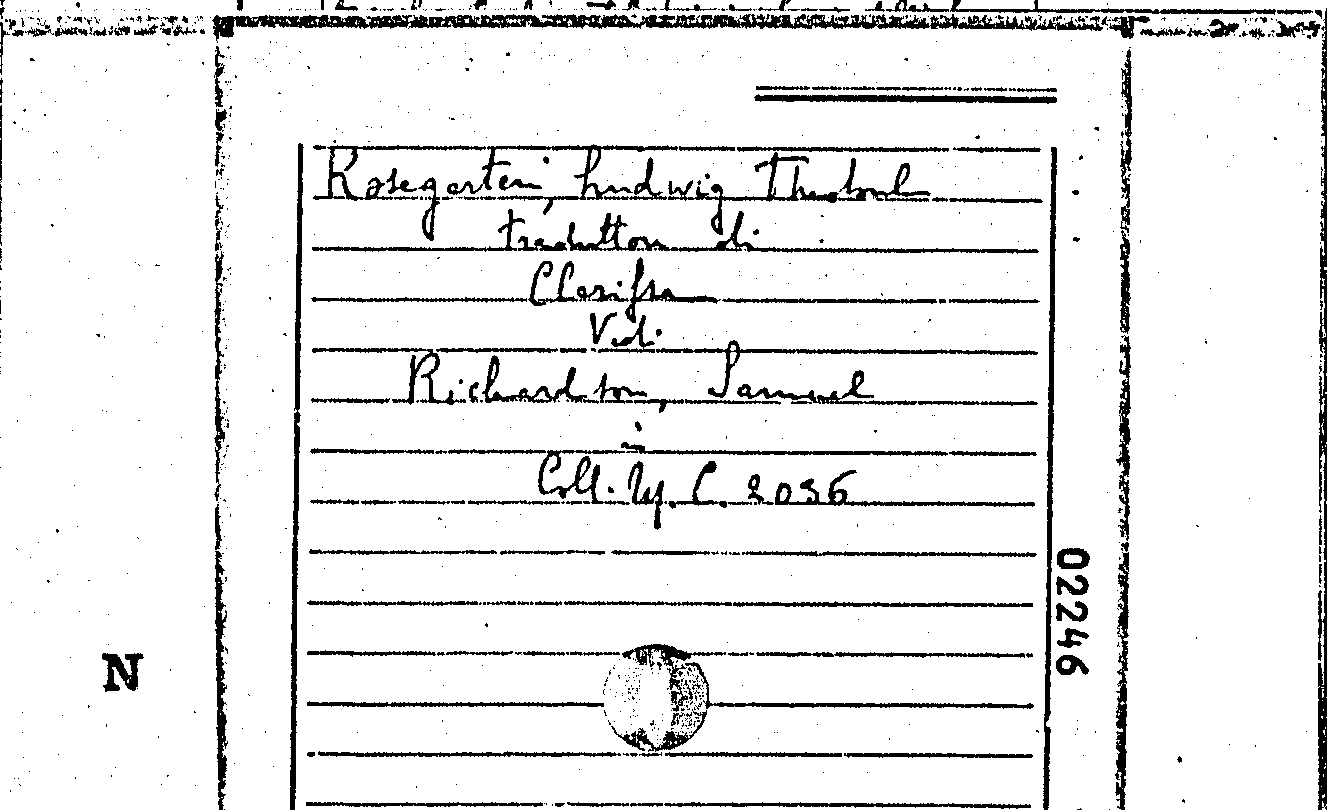 Kosegarten, Ludwig Theobul
traduttore di
Clarissa
Vedi
Richardson, Samuel
in
Coll. It. C. 2036
02246
N